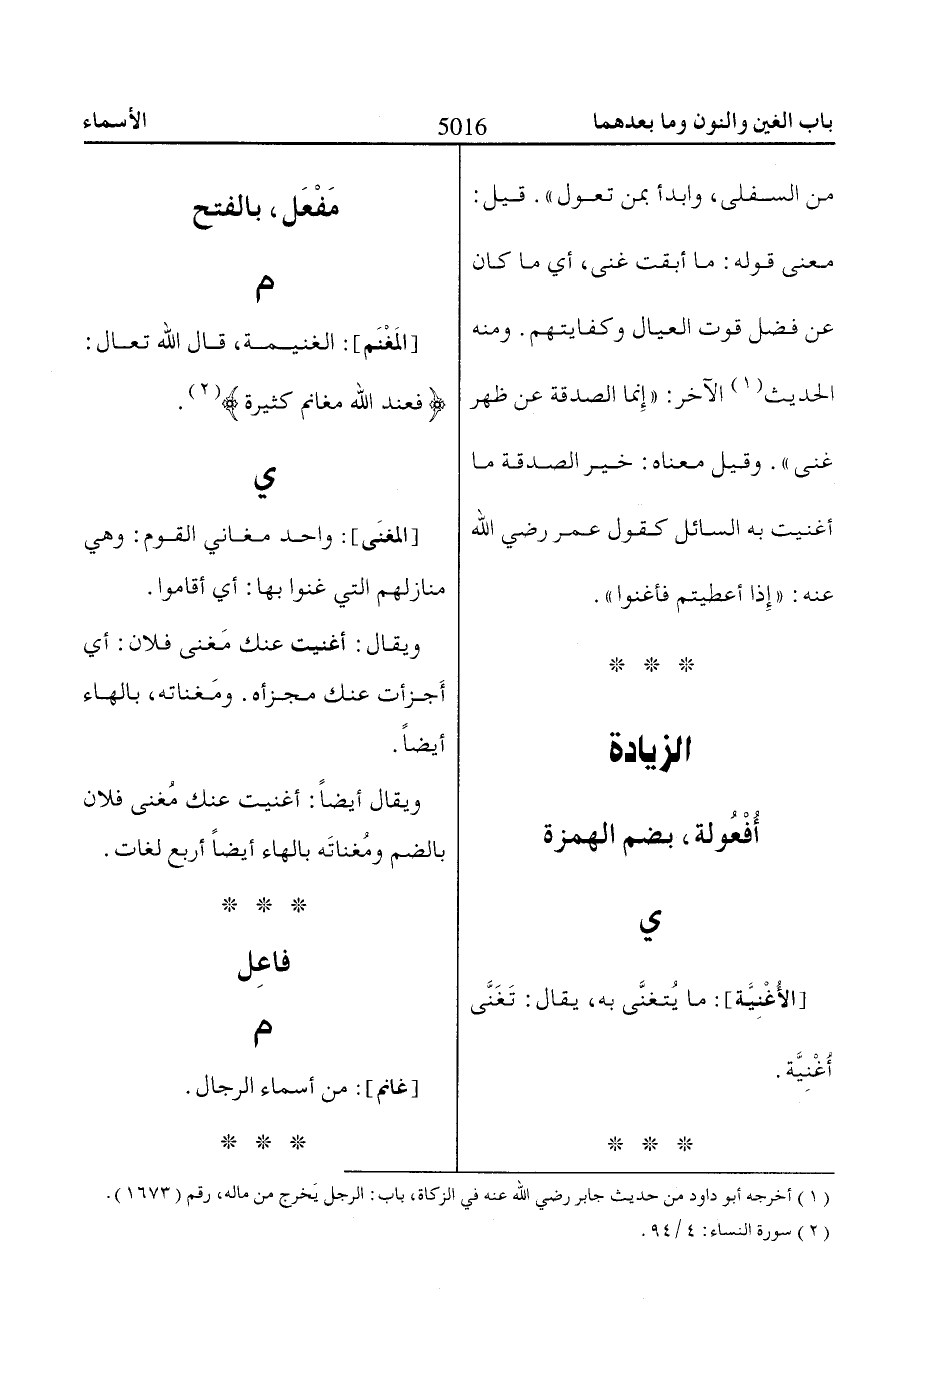 باب الغين والنون وما بعدهما 5016 الأسماء
من السفلى، وابدأ بمن تعول». قيل:
معنى قوله: ما أبقت غنى، أي ما كان
عن فضل قوت العيال وكفايتهم. ومنه
الحديث(١) الآخر: «إنما الصدقة عن ظهر
غنى». وقيل معناه: خير الصدقة ما
أغنيت به السائل كقول عمر رضي الله
عنه: «إذا أعطيتم فأغنوا».
* * *
الزيادة
أُفْعُولة، بضم الهمزة
ي
[الأُغْنِيَّة]: ما يُتغنَّى به، يقال: تَغَنَّى
أُغْنِيَّة.
* * *
مَفْعَل، بالفتح
م
[المَغْنَم]: الغنيمة، قال الله تعال:
﴿فعند الله مغانم كثيرة﴾(٢).
ي
[المغنَى]: واحد مغاني القوم: وهي
منازلهم التي غنوا بها: أي أقاموا.
ويقال: أغنيت عنك مَغنى فلان: أي
أَجزأت عنك مجزأه. ومَغناته، بالهاء
أيضاً.
ويقال أيضاً: أغنيت عنك مُغنى فلان
بالضم ومُغناتَه بالهاء أيضاً أربع لغات.
* * *
فاعِل
م
[غانم]: من أسماء الرجال.
* * *
(١) أخرجه أبو داود من حديث جابر رضي الله عنه في الزكاة، باب: الرجل يَخرج من ماله، رقم (١٦٧٣).
(٢) سورة النساء: ٤/ ٩٤.